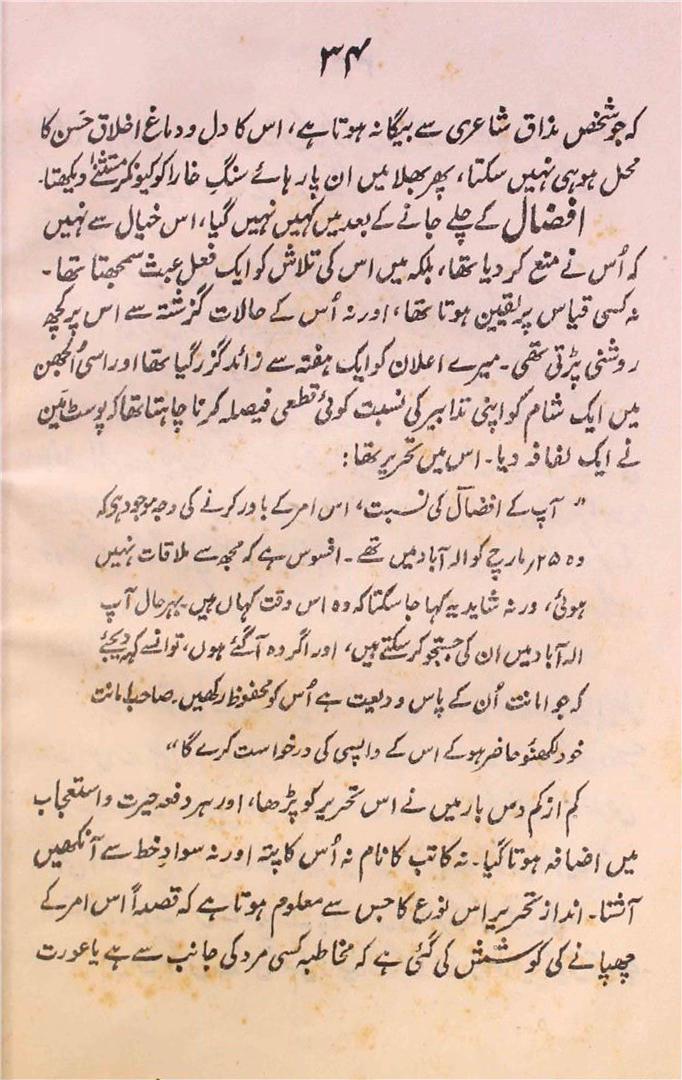 ۳۴
کہ جو شخص مذاق شاعری سے بیگانہ ہوتا ہے، اس کا دل و دماغ اخلاق حَسن کا
محل ہو ہی نہیں سکتا، پھر بھلا میں ان پارہائے سنگِ خارا کو کیونکر مستثنےٰ دیکھتا۔
افضال کے چلے جانے کے بعد میں کہیں نہیں گیا، اس خیال سے نہیں
کہ اُس نے منع کر دیا تھا، بلکہ میں اس کی تلاش کو ایک فعل عبث سمجھتا تھا۔
نہ کسی قیاس پر یقین ہوتا تھا، اور نہ اُس کے حالات گزشتہ سے اس پر کچھ
روشنی پڑتی تھی۔ میرے اعلان کو ایک ہفتہ سے زائد گزر گیا تھا اور اسی اُلجھن
میں ایک شام کو اپنی تدابیر کی نسبت کوئی قطعی فیصلہ کرنا چاہتا تھا کہ پوسٹ مَین
نے ایک لفافہ دیا۔ اس میں تحریر تھا:
" آپ کے افضال کی نسبت، اس امر کے باور کرنے کی وجہ موجود ہی کہ
وہ ۲۵؍مارچ کو الہ آباد میں تھے۔ افسوس ہے کہ مجھ سے ملاقات نہیں
ہوئی، ورنہ شاید یہ کہا جا سکتا کہ وہ اس وقت کہاں ہیں۔ بہرحال آپ
الہ آباد میں ان کی جستجو کر سکتے ہیں، اور اگر وہ آگئے ہوں، تو انسے کہہ دیجئے
کہ جو امانت اُن کے پاس ودیعت ہے اُس کو محفوظ رکھیں۔ صاحب امانت
خود لکھنؤ حاضر ہو کے اس کے واپسی کی درخواست کرے گا"
کم از کم دس بار میں نے اس تحریر کو پڑھا، اور ہر دفعہ حیرت و استعجاب
میں اضافہ ہوتا گیا۔ نہ کاتب کا نام نہ اُس کا پتہ اور نہ سوادِ خط سے آنکھیں
آشنا۔ انداز تحریر اس نوع کا جس سے معلوم ہوتا ہے کہ قصداً اس امر کے
چھپانے کی کوشش کی گئی ہے کہ مخاطبہ کسی مرد کی جانب سے ہے یا عورت